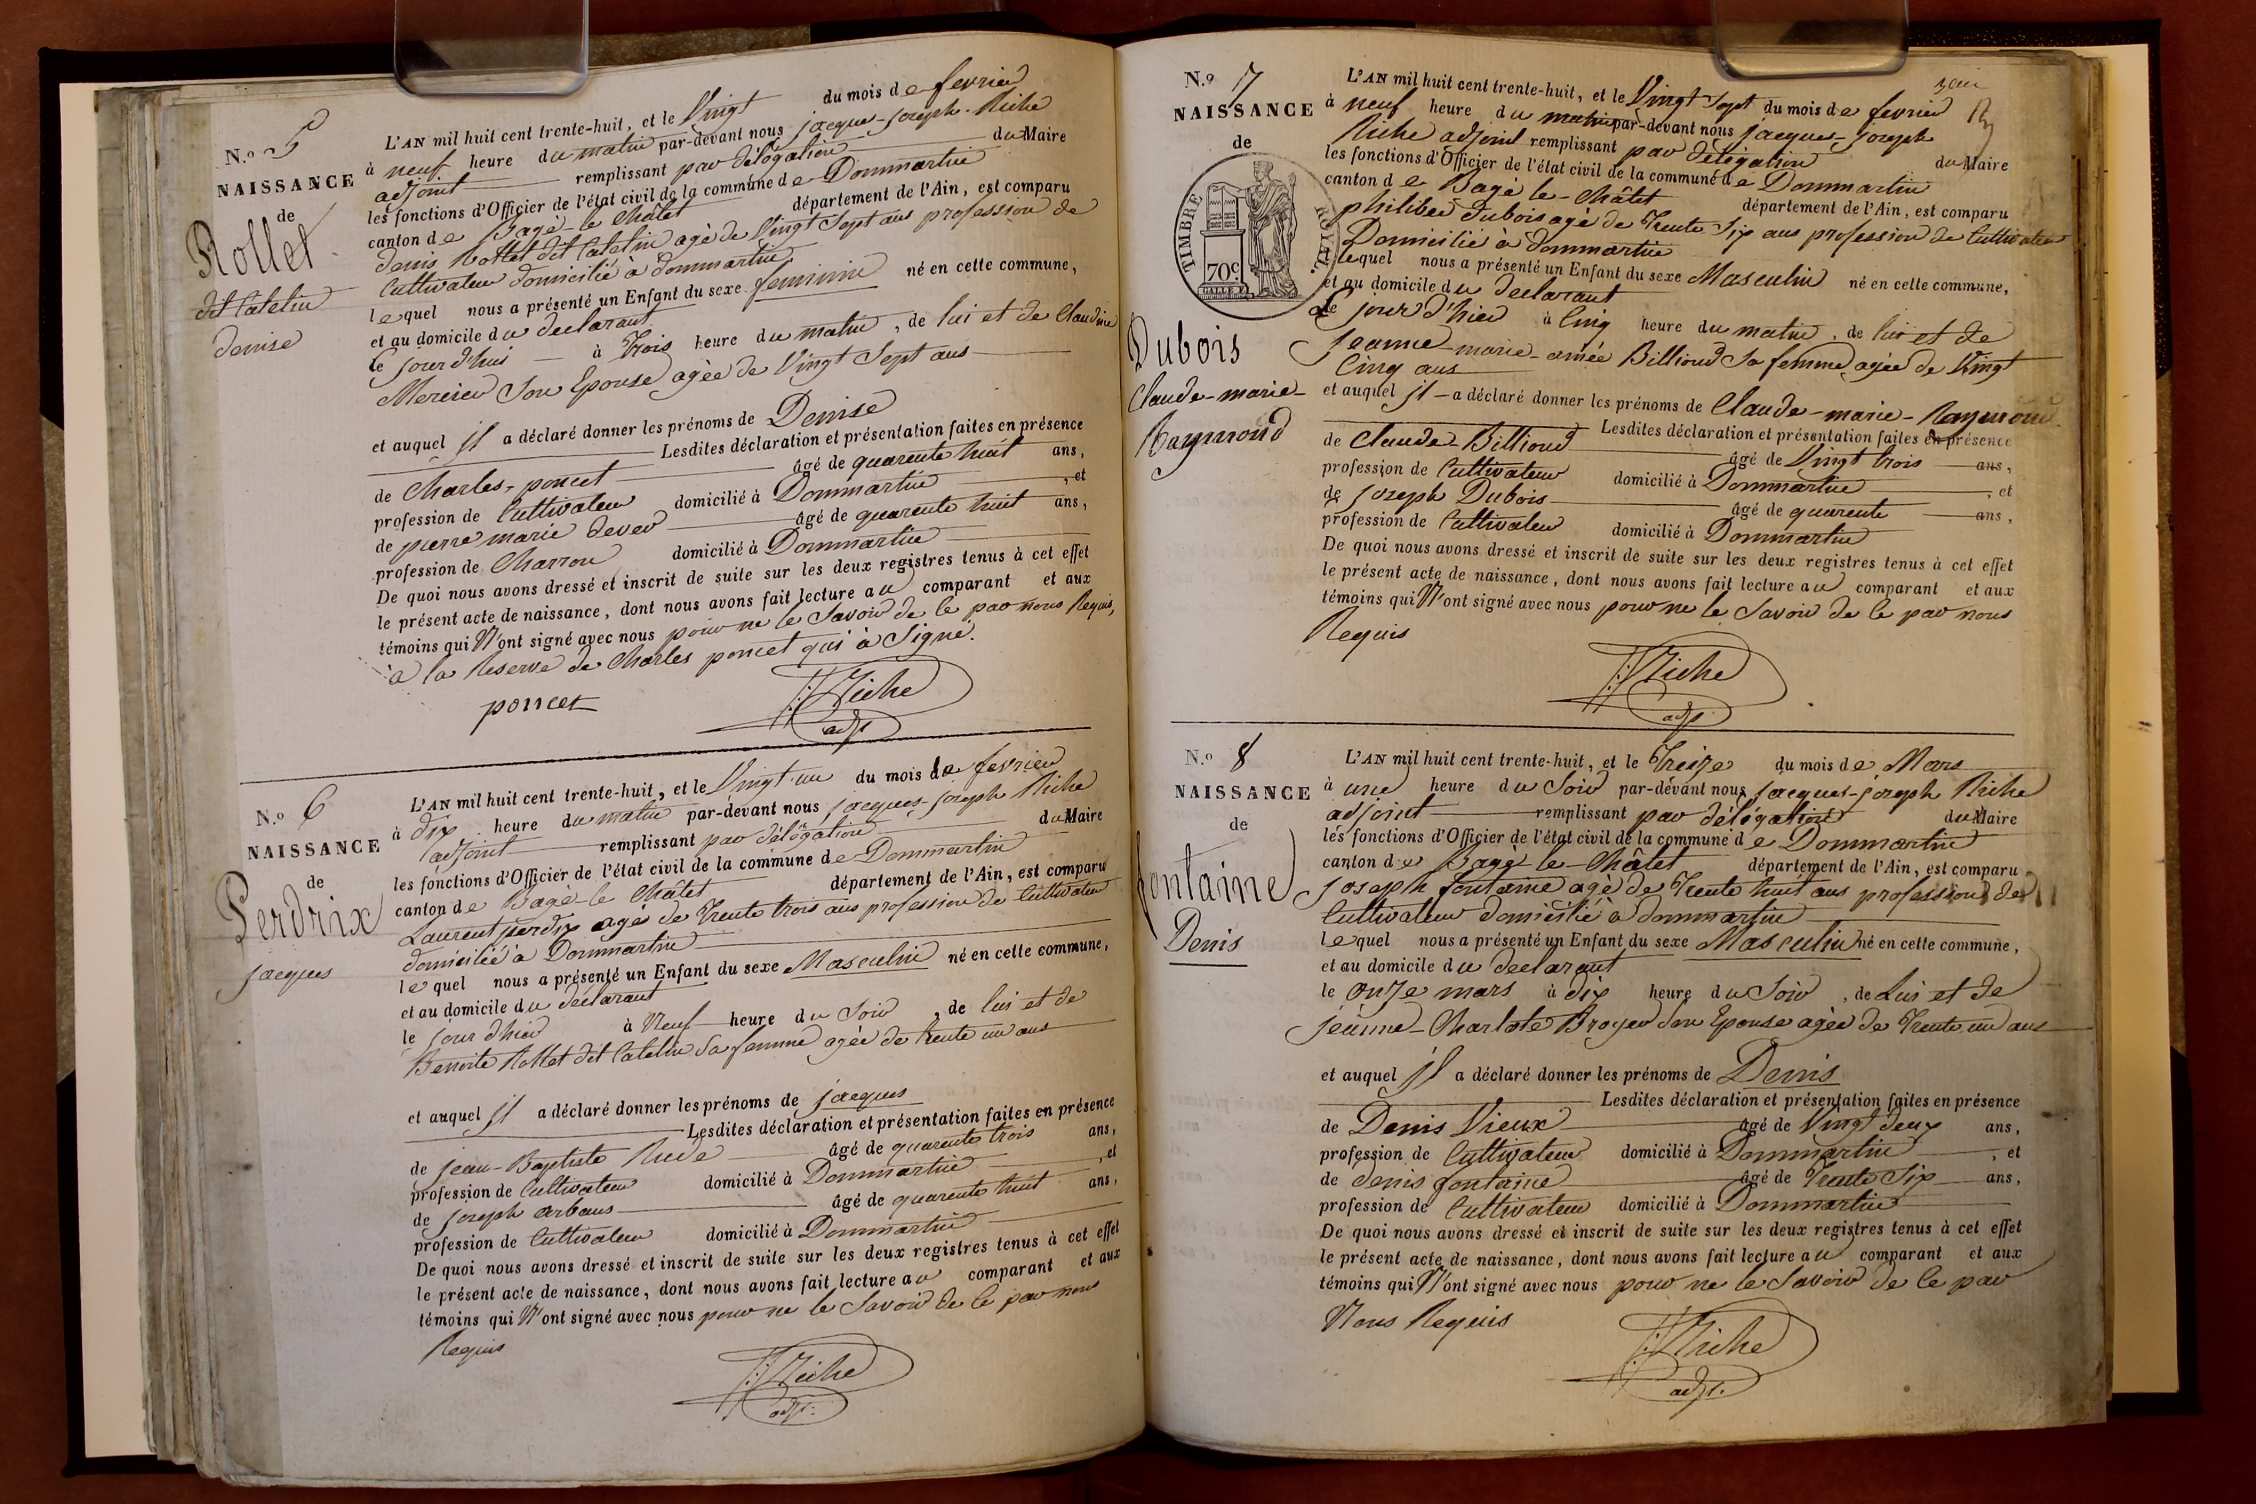 N.o 5
NAISSANCE
de
Rollet
dit Catelin
denise
L'AN mil huit cent trente-huit, et le Vingt du mois de fevrier
à neuf heure du matin par-devant nous jacques-joseph Riche
adjoint remplissant par délégation du Maire
les fonctions d'Officier de l'état civil de la commune de Dommartin
canton de Bagé-le Châtel département de l'Ain, est comparu
denis Rollet dit Catelin agé de Vingt Sept ans profession de
Cultivateur domicilié à dommartin
lequel nous a présenté un Enfant du sexe feminin né en cette commune,
et au domicile du declarant
le jourd'hui à trois heure du matin, de lui et de Claudine
Mercier Son Epouse agée de Vingt Sept ans
et auquel il a déclaré donner les prénoms de Denise
Lesdites déclaration et présentation faites en présence
de Charles-poncet âgé de quarente huit ans,
profession de Cultivateur domicilié à Dommartin, et
de pierre marie devev âgé de quarente huit ans,
profession de Charron domicilié à Dommartin
De quoi nous avons dressé et inscrit de suite sur les deux registres tenus à cet effet
le présent acte de naissance, dont nous avons fait lecture au comparant et aux
témoins qui N'ont signé avec nous pour ne le Savoir de ce par nous Requis,
à la Reserve de Charles poncet qui à Signé.
poncet
J:J:Riche
adjt
N.o 6
NAISSANCE
de
Perdrix
jacques
L'AN mil huit cent trente-huit, et le Vingt-un du mois de fevrier
à dix heure du matin par-devant nous jacques-joseph Riche
adjoint remplissant par délégation du Maire
les fonctions d'Officier de l'état civil de la commune de Dommartin
canton de Bagé-le Châtel département de l'Ain, est comparu
Laurent perdrix agé de Trente trois ans profession de Cultivateur
domicilié à Dommartin
lequel nous a présenté un Enfant du sexe Masculin né en cette commune,
et au domicile du déclarant
le jour d'hier à Neuf heure du Soir, de lui et de
Benoite Rollet dit Catelin Sa femme agée de trente un ans
et auquel il a déclaré donner les prénoms de jacques
Lesdites déclaration et présentation faites en présence
de jean-Baptiste Rude âgé de quarente trois ans,
profession de Cultivateur domicilié à Dommartin, et
de joseph arbans âgé de quarente huit ans,
profession de Cultivateur domicilié à Dommartin
De quoi nous avons dressé et inscrit de suite sur les deux registres tenus à cet effet
le présent acte de naissance, dont nous avons fait lecture au comparant et aux
témoins qui N'ont signé avec nous pour ne le Savoir de ce par nous
Requis
J:J:Riche
adjt.
N.o 7
NAISSANCE
de
TIMBRE ROYAL.
70c.
Dubois
Claude-marie-
Raymond
L'AN mil huit cent trente-huit, et le Vingt Sept du mois de fevrier
à neuf heure du matin par-devant nous jacques-joseph
Riche adjoint remplissant par délégation du Maire
les fonctions d'Officier de l'état civil de la commune de Dommartin
canton de Bagé le-Châtel département de l'Ain, est comparu
philibert Dubois agé de Trente Six ans profession de Cultivateur
Domicilié à dommartin
lequel nous a présenté un Enfant du sexe Masculin né en cette commune,
et au domicile du declarant
le jour d'hier à Cinq heure du matin, de lui et de
jeanne-marie-aimée Billioud Sa femme agée de Vingt
Cinq ans
et auquel il a déclaré donner les prénoms de Claude-marie-Raymond
Lesdites déclaration et présentation faites en présence
de Claude Billioud âgé de Vingt trois ans,
profession de Cultivateur domicilié à Dommartin, et
de joseph Dubois âgé de quarente ans,
profession de Cultivateur domicilié à Dommartin
De quoi nous avons dressé et inscrit de suite sur les deux registres tenus à cet effet
le présent acte de naissance, dont nous avons fait lecture au comparant et aux
témoins qui N'ont signé avec nous pour ne le Savoir de ce par nous
Requis
J:J:Riche
adjt.
N.o 8
NAISSANCE
de
fontaine
Denis
L'AN mil huit cent trente-huit, et le Treize du mois de Mars
à une heure du Soir par-devant nous jacques-joseph Riche
adjoint remplissant par délégation du Maire
les fonctions d'Officier de l'état civil de la commune de Dommartin
canton de Bagé le-Châtel département de l'Ain, est comparu
joseph fontaine agé de Trente huit ans profession de
Cultivateur domicilié à dommartin
lequel nous a présenté un Enfant du sexe Masculin né en cette commune,
et au domicile du declarant
le onze mars à dix heure du Soir, de Lui et de
jeanne-Charlote Broyer Son Epouse agée de Trente un ans
et auquel il a déclaré donner les prénoms de Denis
Lesdites déclaration et présentation faites en présence
de Denis Vieux âgé de Vingt deux ans,
profession de Cultivateur domicilié à Dommartin, et
de denis fontaine âgé de Trente Six ans,
profession de Cultivateur domicilié à Dommartin
De quoi nous avons dressé et inscrit de suite sur les deux registres tenus à cet effet
le présent acte de naissance, dont nous avons fait lecture au comparant et aux
témoins qui N'ont signé avec nous pour ne le Savoir de ce par
Nous Requis
J:J:Riche
adjt.